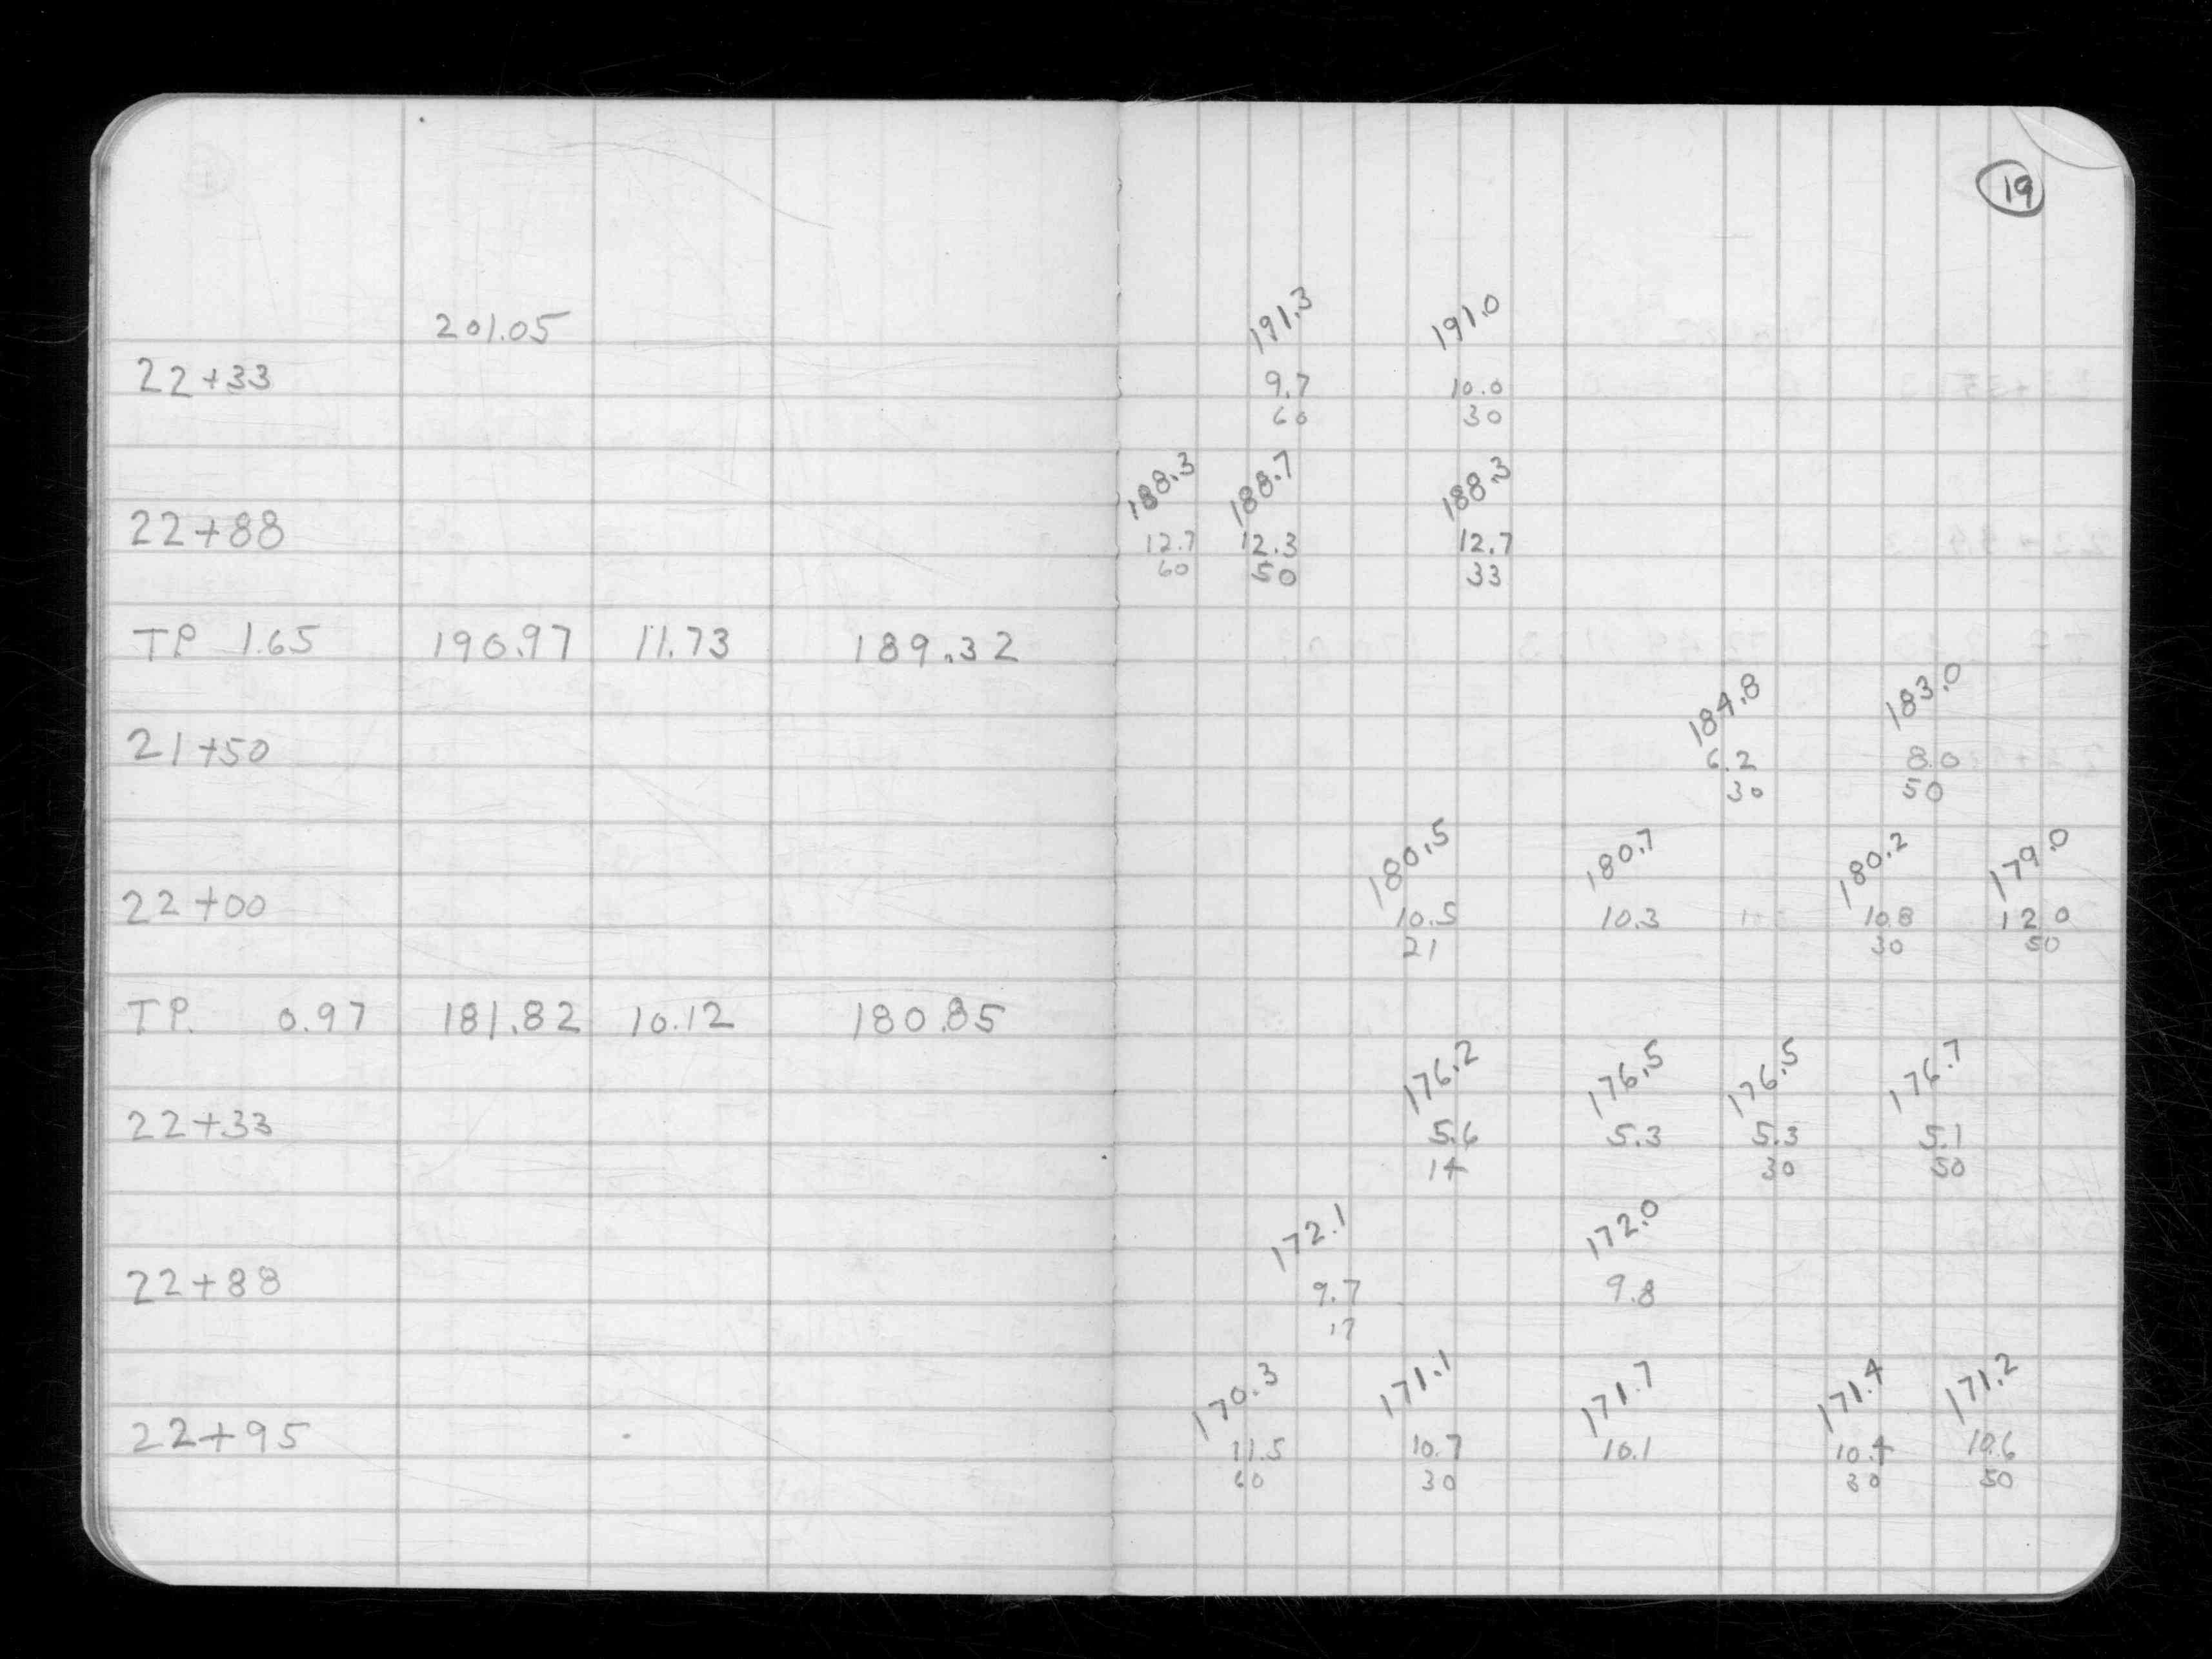 19
201.05
191.3 191.0
22+33 9.7 10.0
60 30
188.3 188.7 188.3
22+88 12.7 12.3 12.7
60 50 33
TP 1.65 190.97 11.73 189.32
184.8 183.0
21+50 6.2 8.0
30 50
180.5 180.7 180.2 179.0
22+00 10.5 10.3 10.8 12.0
21 30 50
TP. 0.97 181.82 10.12 180.85
176.2 176.5 176.5 176.7
22+33 5.6 5.3 5.3 5.1
14 30 50
172.1 172.0
22+88 9.7 9.8
17
170.3 171.1 171.7 171.4 171.2
22+95 11.5 10.7 10.1 10.4 10.6
60 30 30 50